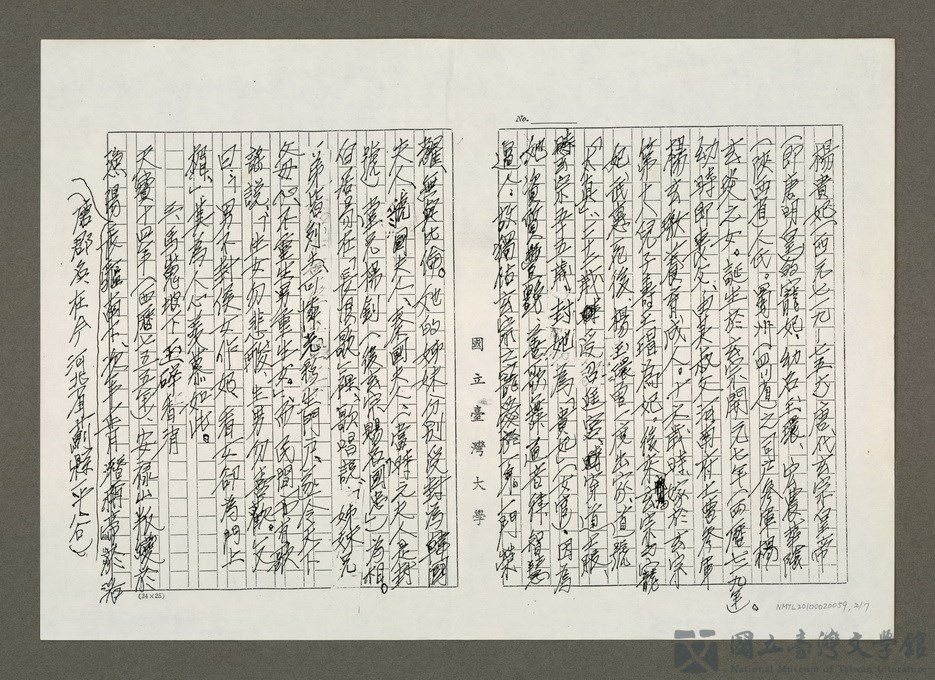 No.
楊貴妃（西元七一九－七五六）唐代玄宗皇帝
（即唐明皇）的寵妃，幼名玉環、弘農華陰
（陝西省）人氏。蜀州（四川省）之司戶參軍楊
玄琰之女。誕生於玄宗開元七年（西曆七一九年）。
幼時即喪父，由其叔父河南府士曹參軍
楊玄璬養育成人。十七歲時，嫁於玄宗
第十八兒子壽王瑁為妃。後來玄宗之寵
妃武惠死後，楊玉環曾一度出家，道號
「太真」，二十二歲，被召進宮，時穿道士服，
時玄宗年五五歲，封她為貴妃（女官）。因為
她資質豐艷，善歌舞，通音律，智慧
過人。故獨佔玄宗之寵，一門榮
耀，無與比倫。她的姊妹分別促封為韓國
夫人、虢國夫人、秦國夫人，當時元夫人是封
號，堂兄楊釗（後玄宗賜名國忠）為相。
白居易在「長恨歌」裡，歌唱說：「姊妹兄
弟皆列土，可憐光彩生門戶，遂令天下
父母心，不重生男重生女。」而民間亦有歌
謠說：「生女勿悲酸，生男勿喜歡。」又
曰：「男不封侯女作妃，看女卻為門上
楣。」其為人心羨慕如此。
三、馬嵬坡下玉碎香消
天寶十四年（西曆七五五年）安祿山叛變於
漁陽，長驅南下，次年一月潛稱帝於洛
（唐郡名在今河北省薊縣平谷）
國立臺灣大學
(24×25)
NMTL20100020059_2/7
國立臺灣文學館
National Museum of Taiwan Literature